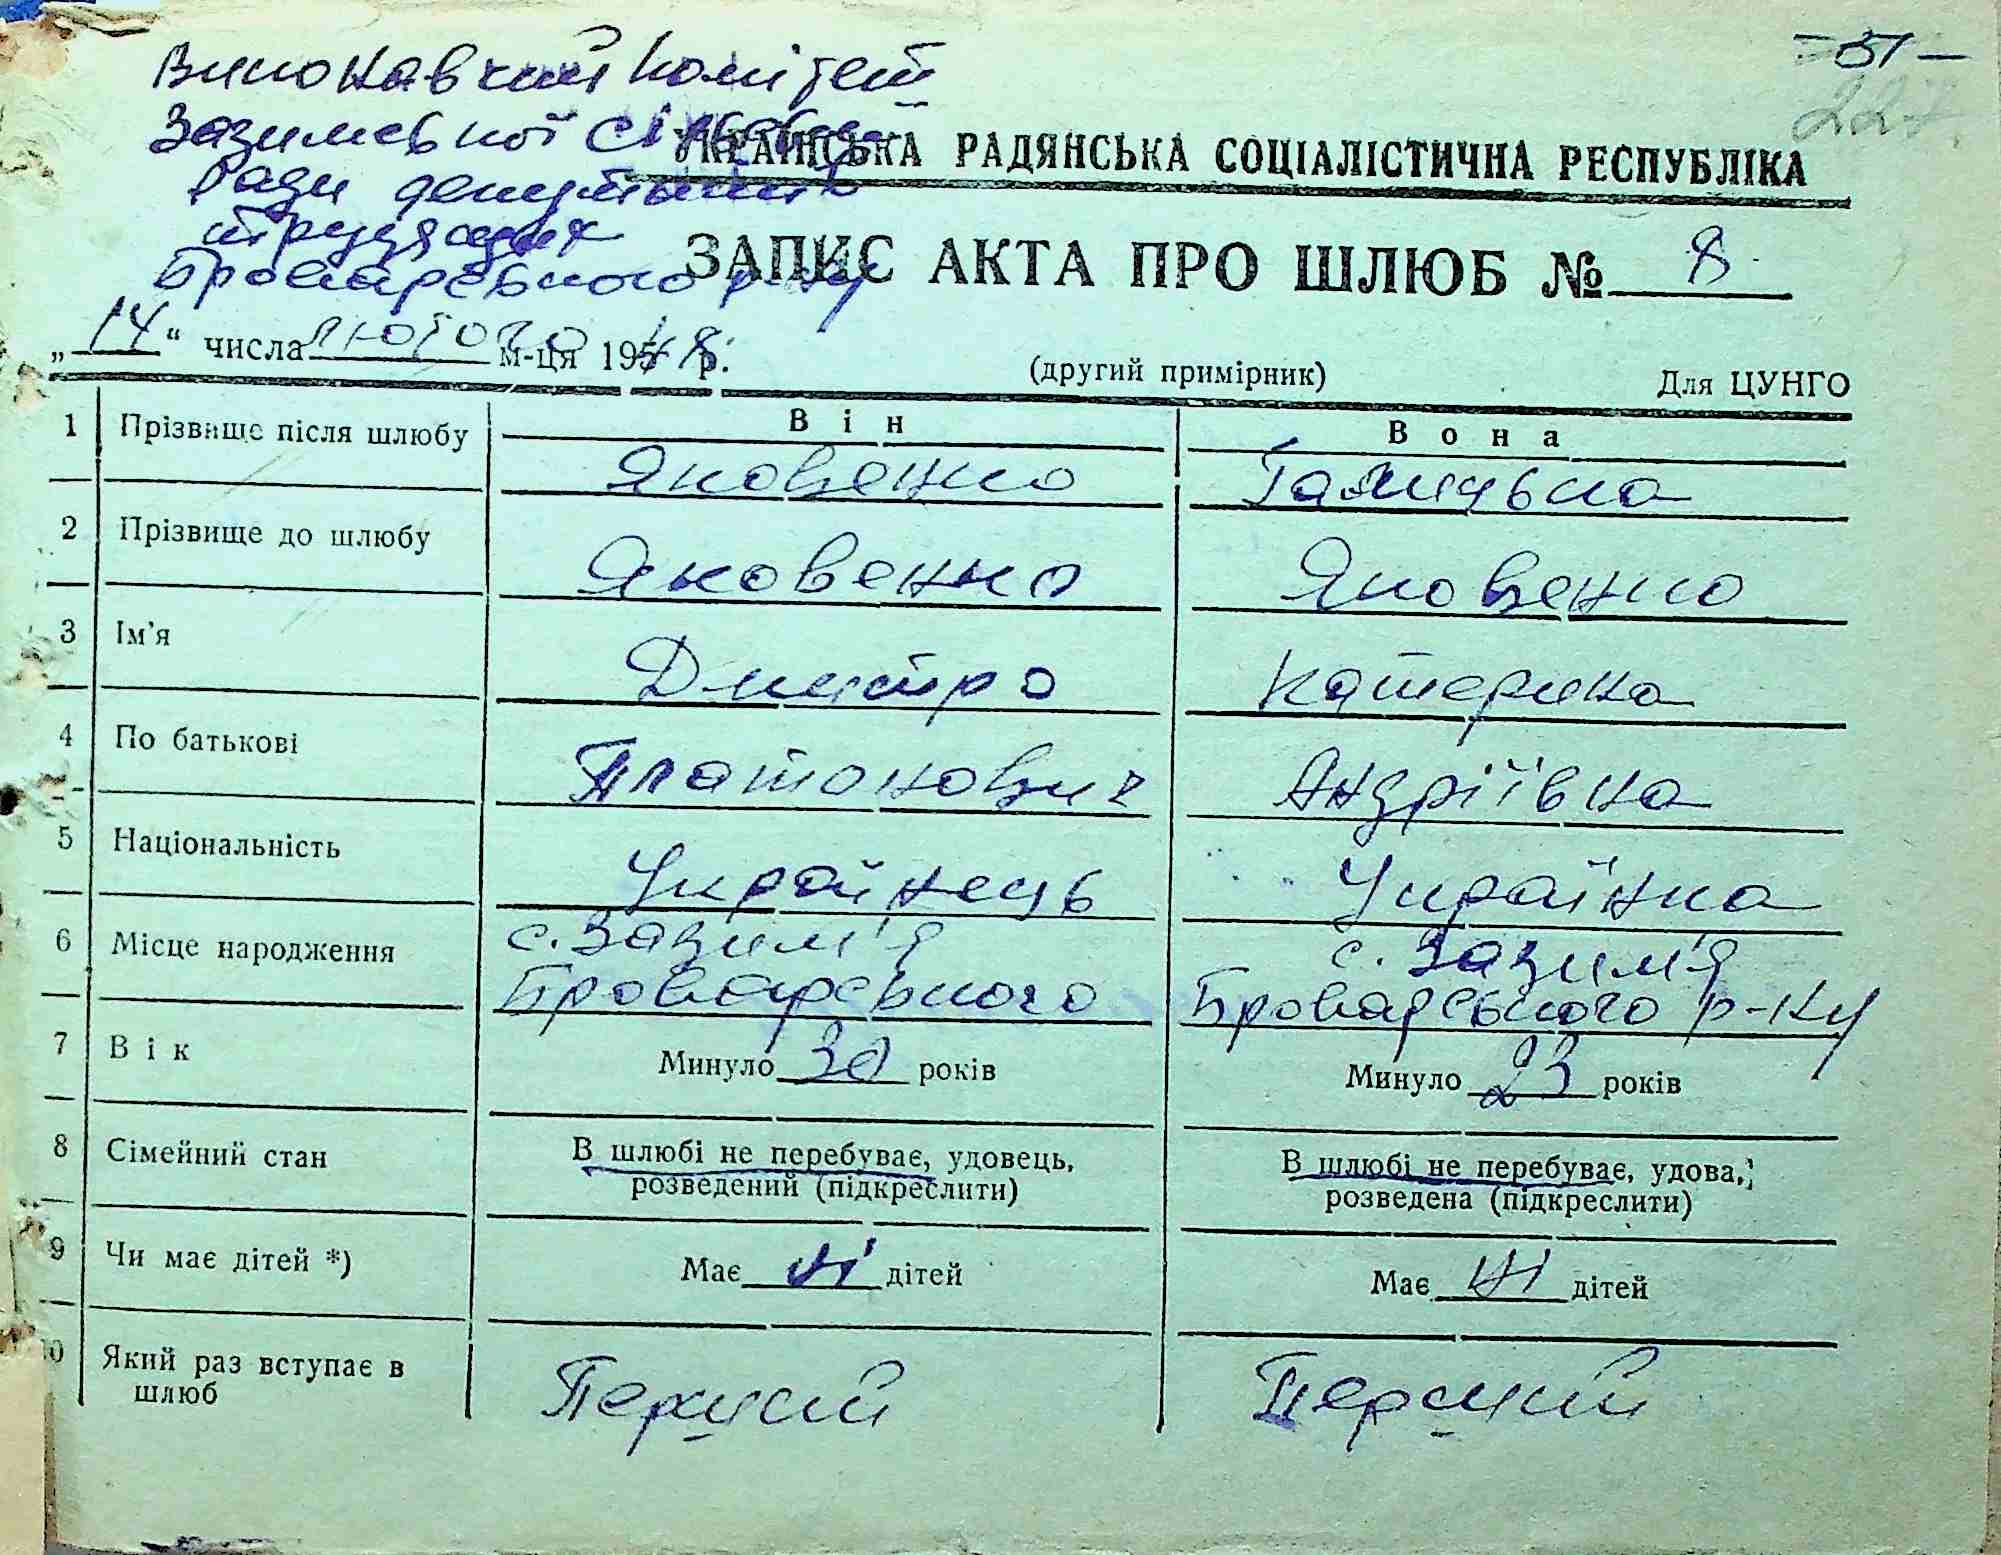 - 51 -
227
Виконавчий комітет
Зазимської сільської
Ради депутатів
трудящих
Броварського р-ну
УКРАЇНСЬКА РАДЯНСЬКА СОЦІАЛІСТИЧНА РЕСПУБЛІКА
ЗАПИС АКТА ПРО ШЛЮБ № 8
„14“ числа лютого м-ця 1948 р.
(другий примірник) Для ЦУНГО
Він Вона
1 Прізвище після шлюбу Яковенко
2 Прізвище до шлюбу Яковенко Яковенко
3 Ім'я Дмитро Катерина
4 По батькові Платонович Андріївна
5 Національність Українець Українка
6 Місце народження с. Зазим'я с. Зазим'я
Броварського Броварського р-ну
7 Вік Минуло 30 років Минуло 23 років
8 Сімейний стан В шлюбі не перебуває, удовець, В шлюбі не перебуває, удова,
розведений (підкреслити) розведена (підкреслити)
9 Чи має дітей *) Має ні дітей Має ні дітей
10 Який раз вступає в Перший Перший
шлюб